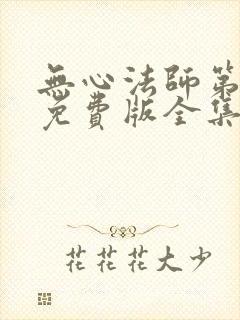 無心法師第
免費版全集
花花花大少